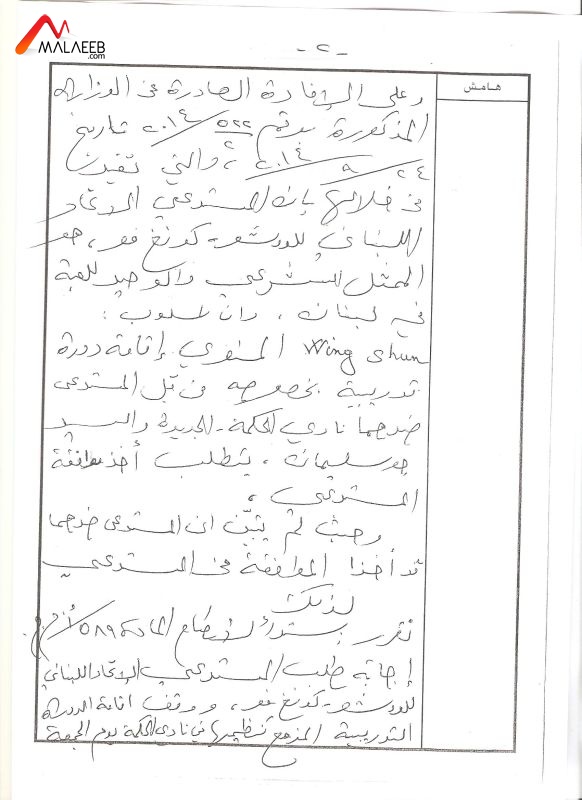 MALAEEB
.com
- ٢ -
هامش
وعلى الإفادة الصادرة عن الوزارة
المذكورة برقم ٥٢٢/٢٠١٤ تاريخ
٢٤/٩/٢٠١٤، والتي تفيد
من خلالها بأن المستدعي الاتحاد
اللبناني للووشو - كونغ فو، هو
الممثل الشرعي والوحيد للعبة
في لبنان، وان اسلوب:
Wing Shun المنوي إقامة دورة
تدريبية بخصوصه من قبل المستدعى
ضدهما نادي الحكمة - الجديدة والسيد
جو سليمان، يتطلب أخذ موافقة
المستدعي،
وحيث لم يتبين ان المستدعى ضدهما
قد أخذا الموافقة من المستدعي
لذلك
نقرر سنداً لأحكام المادة ٥٨٩ أ.م.م.
إجابة طلب المستدعي الاتحاد اللبناني
للووشو - كونغ فو، ووقف اقامة الدورة
التدريبية المزمع تنظيمها في نادي الحكمة يوم الجمعة